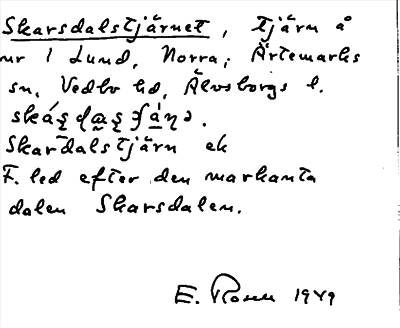 Skarsdalstjärnet, tjärn å
nr 1 Lund, Norra, Ärtemarks
sn, Vedbo hd, Älvsborgs l.
Skarsdalstjärn ek
F. led efter den markanta
dalen Skarsdalen.
E. 1949